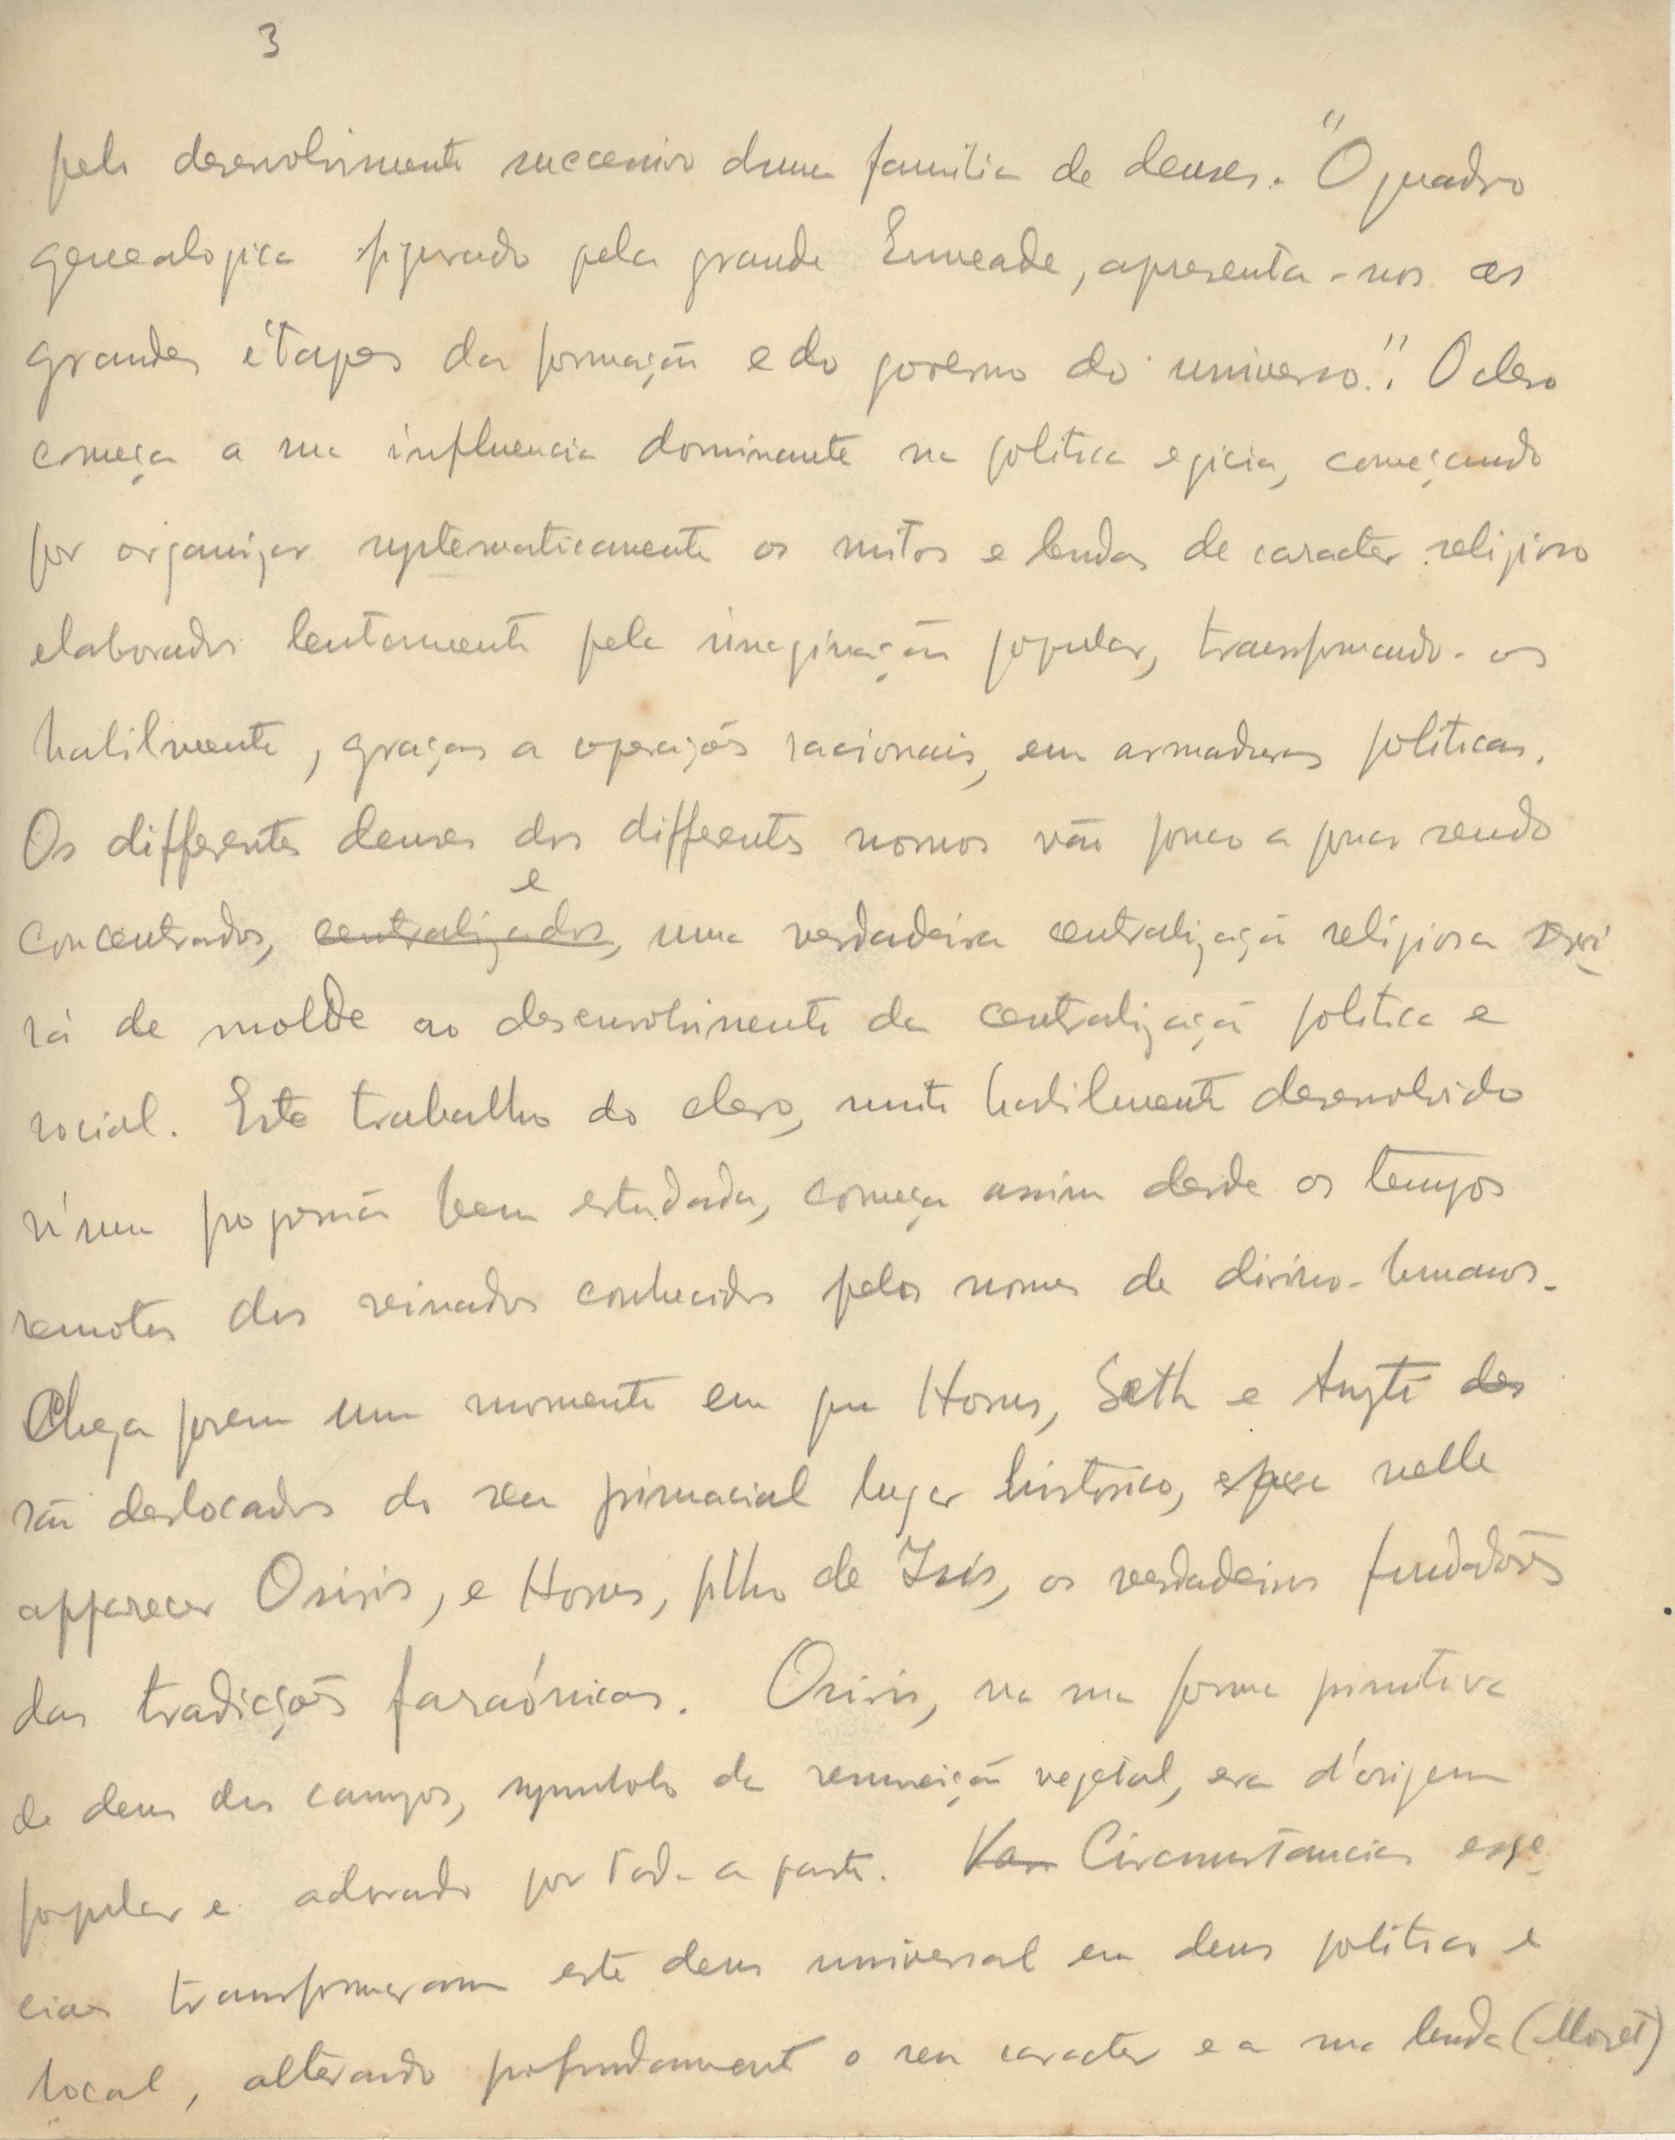 3
pelo desenvolvimento successivo duma familia de deuses. "O quadro
genealogico figurado pela grande Enneade, apresenta-nos as
grandes étapes da formação e do governo do universo.". O clero
começa a sua influencia dominante na politica egicia, começando
por organizar systematicamente os mitos e lendas de caracter religioso
elaborados lentamente pela imaginação popular, transformando-os
habilmente, graças a operações racionais, em armaduras politicas.
Os differentes deuses dos differentes nomos vão pouco a pouco sendo
e
concentrados, centralizados, uma verdadeira centralização religiosa servi
rá de molde ao desenvolvimento da centralização politica e
social. Este trabalho do clero, muito habilmente desenvolvido
n'uma progressão bem estudada, começa assim desde os tempos
remotos dos reinados conhecidos pelos nomes de divino-humanos.
Chega porem um momento em que Horus, Seth e Anzti des
são deslocados do seu primacial lugar historico, para nelle
apparecer Osiris, e Horus, filho de Isis, os verdadeiros fundadores
das tradicções faraónicas. Osiris, na sua forma primitiva
de deus dos campos, symbolo da resurreição vegetal, era d'origem
popular e adorado por toda a parte. Circumstancias espe
ciaes transformaram este deus universal em deus politico e
local, alterando profundamente o seu caracter e a sua lenda (Moret)